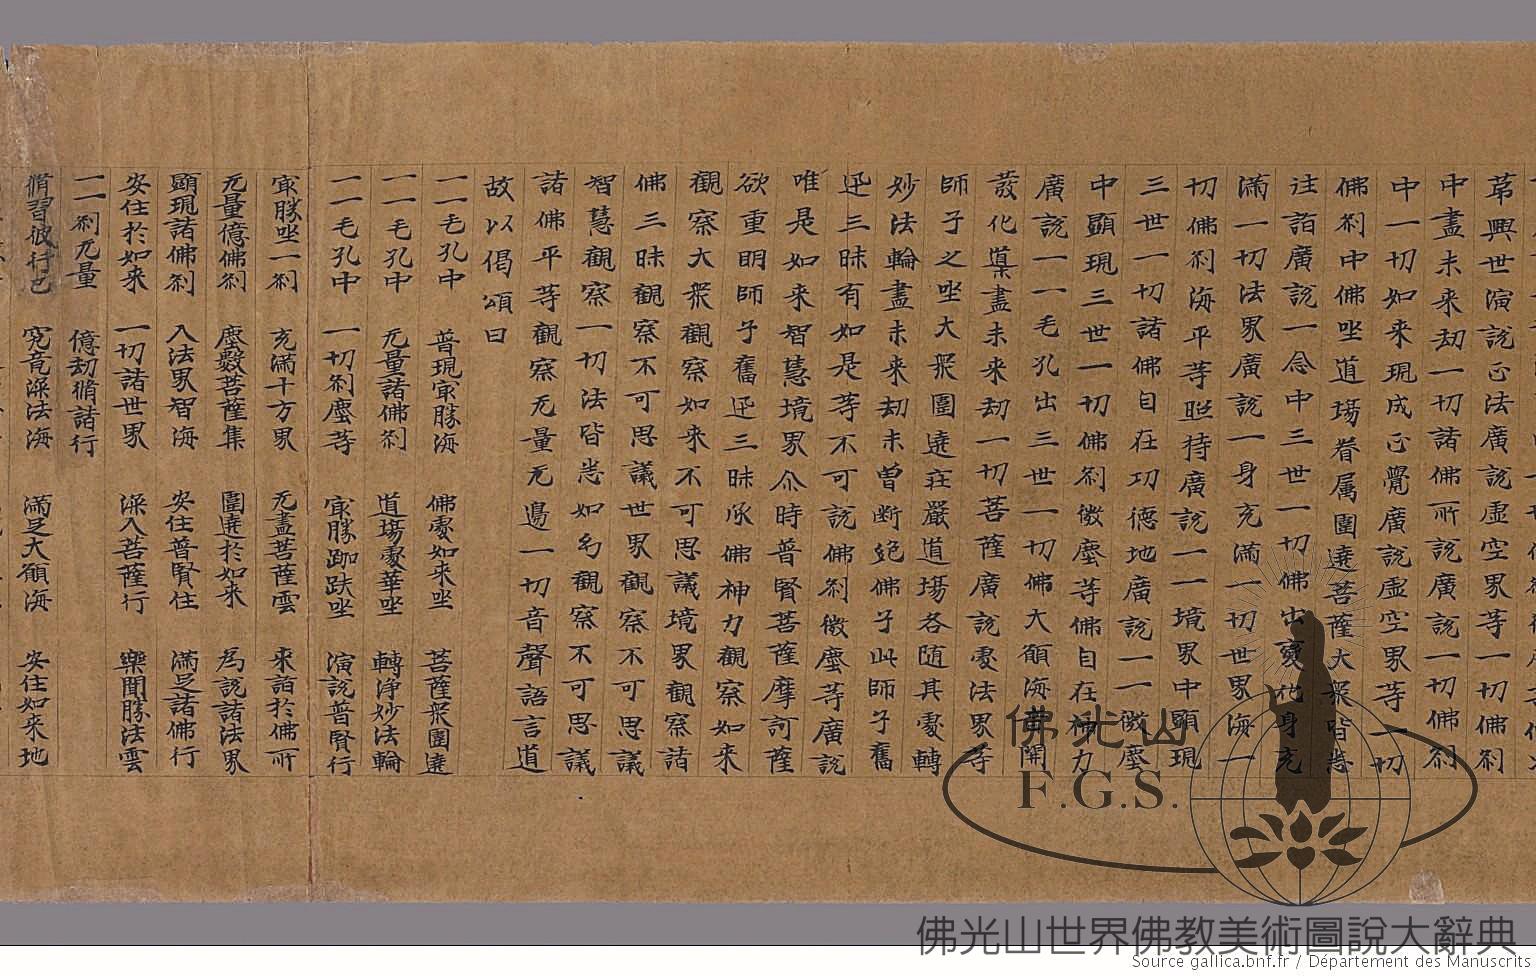 苐興世演說正法廣說虛空界等一切佛剎
中盡未來劫一切諸佛所說廣說一切佛剎
中一切如來現成正覺廣說虛空界等一切
佛剎中佛坐道場眷屬圍遶菩薩大眾皆悉
往詣廣說一念中三世一切佛出變化身充
滿一切法界廣說一身充滿一切世界海一
切佛剎海平等照持廣說一一境界中顯現
三世一切諸佛自在功德地廣說一一微塵
中顯現三世一切佛剎微塵等佛自在神力
廣說一一毛孔出三世一切佛大願海音開
發化導盡未來劫一切菩薩廣說處法界等
師子之坐大眾圍遶莊嚴道場各隨其處轉
妙法輪盡未來劫未曾斷絕佛子此師子奮
迅三昧有如是等不可說佛剎微塵等廣說
唯是如來智慧境界尒時普賢菩薩摩訶薩
欲重明師子奮迅三昧承佛神力觀察如來
觀察大眾觀察如來不可思議境界觀察諸
佛三昧觀察不可思議世界觀察不可思議
智慧觀察一切法皆悉如幻觀察不可思議
諸佛平等觀察无量无邊一切音聲語言道
故以偈頌曰
一一毛孔中 普現寂勝海 佛處如來坐 菩薩眾圍遶
一一毛孔中 无量諸佛剎 道場處華坐 轉淨妙法輪
一一毛孔中 一切剎塵等 寂勝跏趺坐 演說普賢行
寂勝坐一剎 充滿十方界 无盡菩薩雲 來詣於佛所
无量億佛剎 塵數菩薩集 圍遶於如來 為說諸法界
顯現諸佛剎 入法界智海 安住普賢住 滿足諸佛行
安住於如來 一切諸世界 深入菩薩行 樂聞勝法雲
一一剎无量 億劫脩諸行
脩習彼行已 究竟深法海 滿足大願海 安住如來地
佛光山
F.G.S.
佛光山世界佛教美術圖說大辭典
Source gallica.bnf.fr / Département des Manuscrits